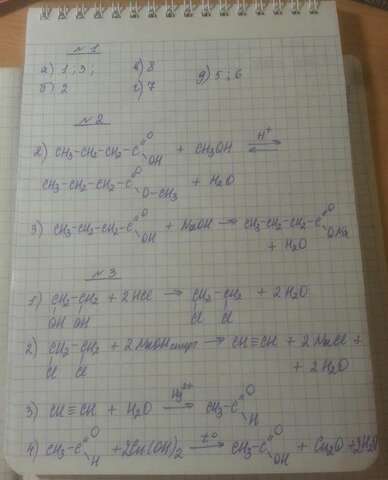 №1
а) 1; 3;   в) 8   д) 5; 6
б) 2   г) 7
№2
2) CH₃-CH₂-CH₂-C(=O)OH + CH₃OH ⇄ (H⁺)
CH₃-CH₂-CH₂-C(=O)O-CH₃ + H₂O
3) CH₃-CH₂-CH₂-C(=O)OH + NaOH → CH₃-CH₂-CH₂-C(=O)ONa
+ H₂O
№3
1) CH₂-CH₂ + 2HCl → CH₂-CH₂ + 2H₂O
OH OH Cl Cl
2) CH₂-CH₂ + 2NaOH спирт → CH≡CH + 2NaCl +
Cl Cl + 2H₂O
3) CH≡CH + H₂O →(Hg²⁺) CH₃-C(=O)H
4) CH₃-C(=O)H + 2Cu(OH)₂ →(t°) CH₃-C(=O)OH + Cu₂O + 2H₂O